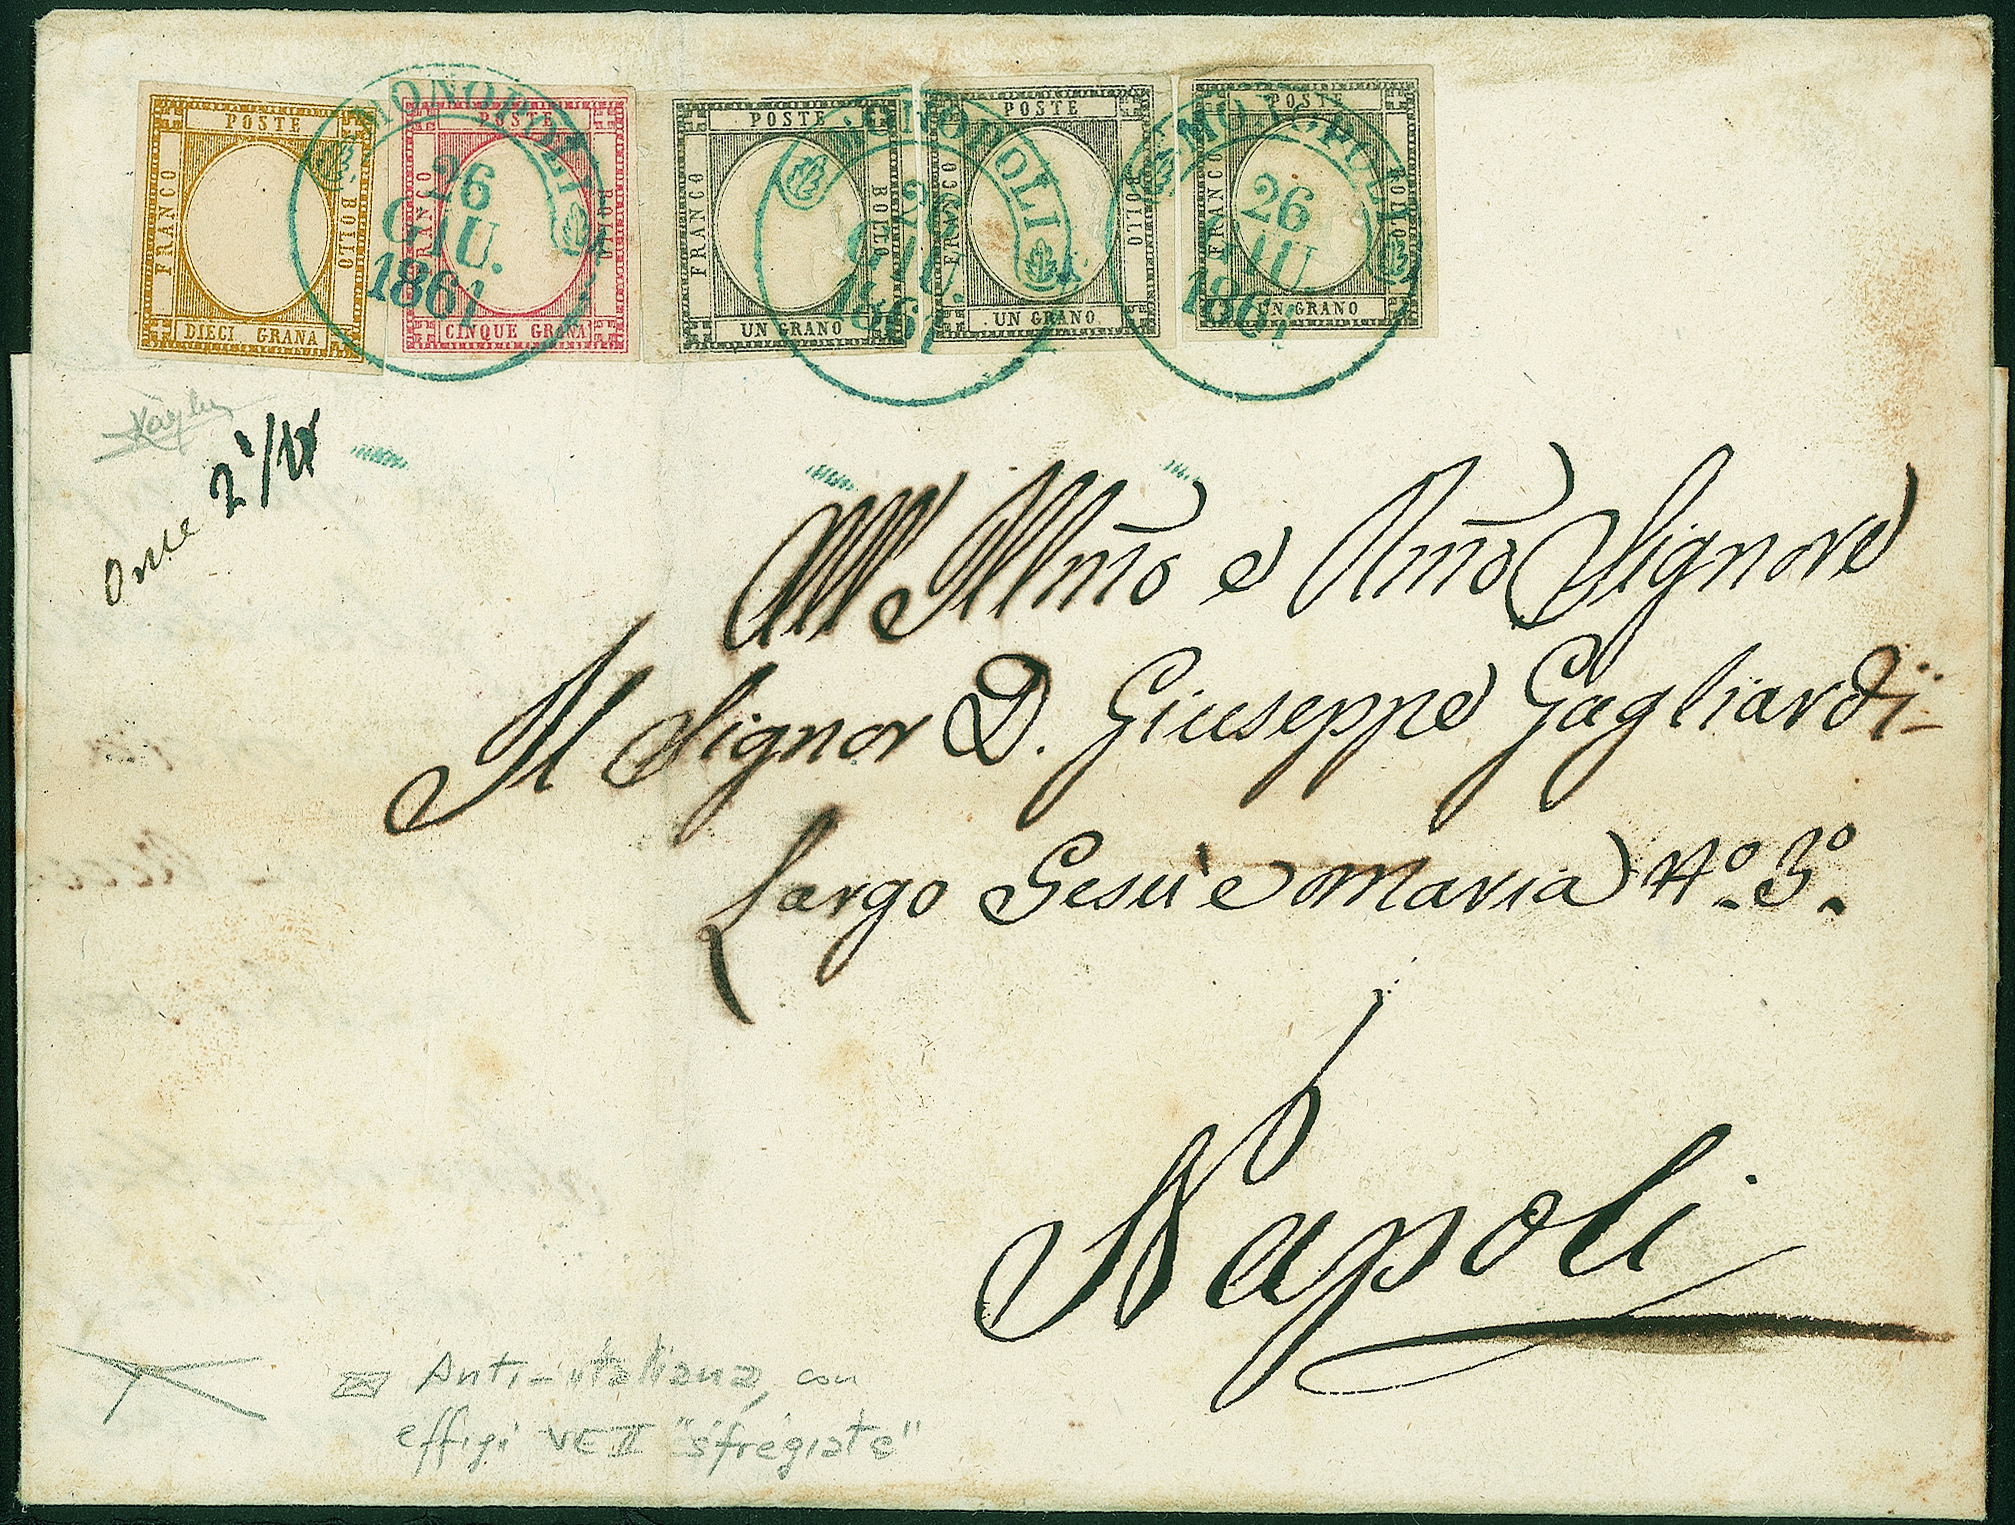 POSTE
FRANCO
BOLLO
DIECI GRANA
POSTE
FRANCO
BOLLO
CINQUE GRANA
MONOPOLI
26
GIU.
1861
POSTE
FRANCO
BOLLO
UN GRANO
POSTE
FRANCO
BOLLO
UN GRANO
MONOPOLI
26
GIU.
1861
POSTE
FRANCO
BOLLO
UN GRANO
MONOPOLI
26
GIU
1861
Once 2 1/4
All' Illmo e Rmo Signore
Il Signor D. Giuseppe Gagliardi
Largo Gesù e Maria No. 3o.
Napoli
Anti-italiana, con
effigi VE II "sfregiate"